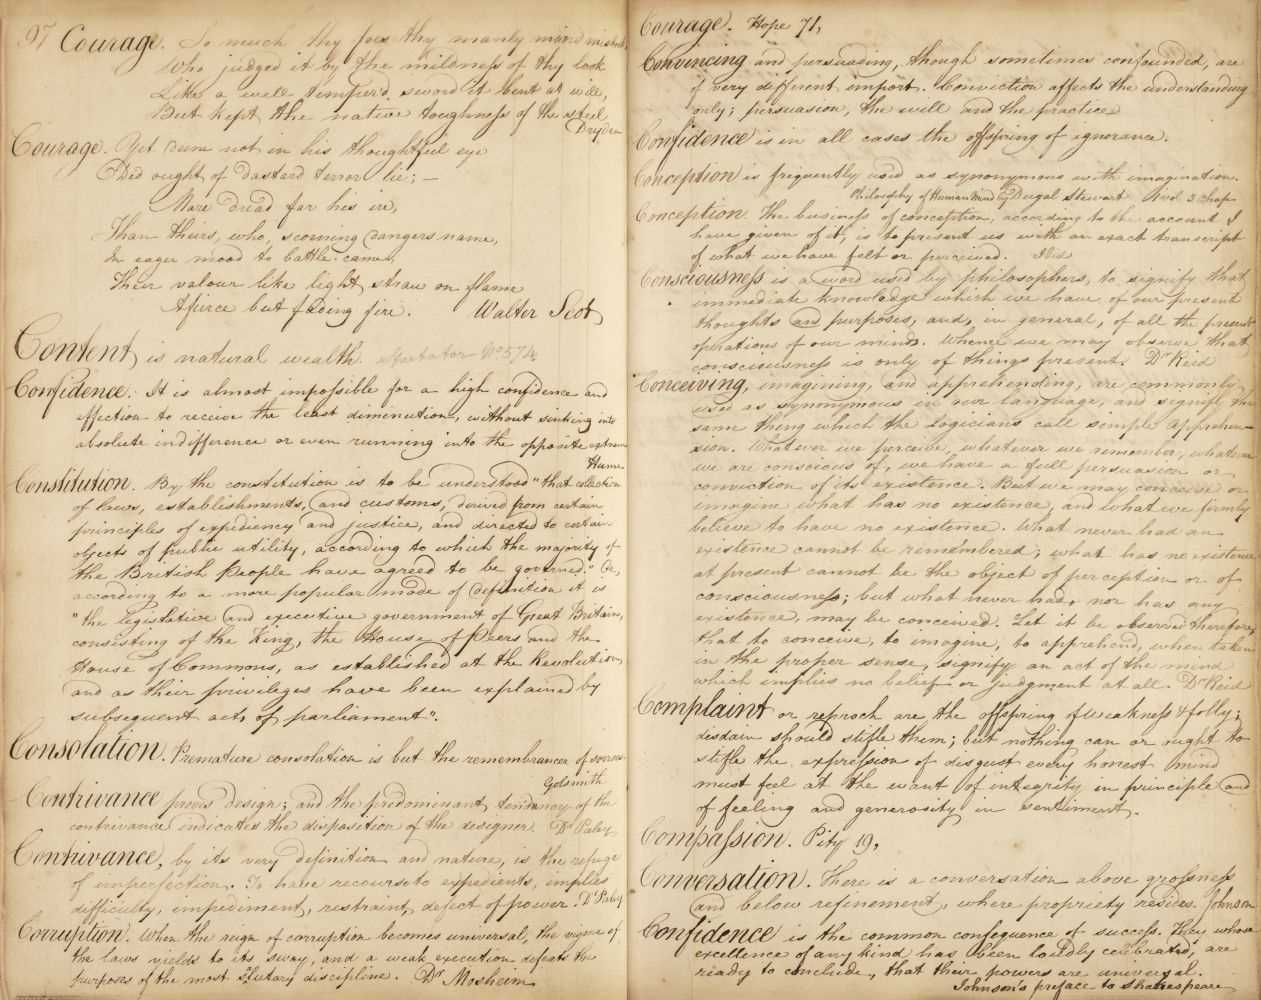 97 Courage. So much thy foes thy manly mind mistook
Who judged it by the mildness of thy look
Like a well temper'd sword it bent at will,
But kept the native toughness of the steel
Dryden
Courage. Yet sure not in his thoughtful eye
Did ought of dastard terror lie; —
More dread far his ire,
Than theirs, who, scorning dangers name,
In eager mood to battle came,
Their valour like light straw on flame
A fierce but fading fire. Walter Scot,
Content, is natural wealth. Spectator No. 574
Confidence. It is almost impossible for a high confidence and
affection to receive the least dimenution, without sinking into
absolute indifference or even running into the opposite extreme
Hume.
Constitution. By the constitution is to be understood "that collection
of laws, establishments, and customs, derived from certain
principles of expediency and justice, and directed to certain
objects of public utility, according to which the majority of
the British People have agreed to be governed." Or,
according to a more popular mode of definition it is
"the legislative and executive government of Great Britain,
consisting of the King, the House of Peers and the
House of Commons, as established at the Revolution,
and as their privileges have been explained by
subsequent acts of parliament".
Consolation. Premature consolation is but the remembrancer of sorrow
Golsmith
Contrivance proves design; and the predominant tendency of the
contrivance indicates the disposition of the designer. Dr. Paley
Contrivance, by its very definition and nature, is the refuge
of imperfection. To have recourse to expedients, implies
difficulty, impediment, restraint, defect of power. Dr Paley
Corruption. When the reign of corruption becomes universal, the vigour of
the laws yields to its sway, and a weak execution defeats the
purposes of the most salutary discipline. Dr. Mosheim
Courage. Hope 71,
Convincing and persuading, though sometimes confounded, are
of very different import. Conviction affects the understanding
only; persuasion, the will and the practice
Confidence is in all cases the offspring of ignorance.
Conception is frequently used as synonymous with imagination.
Philosophy of Human Mind by Dugal Stewart vol 3 chap
Conception. The business of conception, according to the account I
have given of it, is to present us with an exact transcript
of what we have felt or perceived. Ibid
Consciousness is a word used by philosophers, to signify that
immediate knowledge which we have of our present
thoughts and purposes, and, in general, of all the present
operations of our minds. Whence we may observe that
consciousness is only of things present. Dr Reid
Conceiving, imagining, and apprehending, are commonly
used as synonymous in our language, and signify the
same thing which the logicians call simple apprehen-
sion. Whatever we perceive, whatever we remember, whatever
we are conscious of, we have a full persuasion or
conviction of its existence. But we may conceive or
imagine what has no existence, and what we firmly
believe to have no existence. What never had an
existence cannot be remembered; what has no existence
at present cannot be the object of perception or of
consciousness; but what never had, nor has any
existence, may be conceived. Let it be observed therefore,
that to conceive, to imagine, to apprehend, when taken
in the proper sense, signify an act of the mind
which implies no belief or judgment at all. Dr Reid
Complaint or reproch are the offspring of weakness & folly;
disdain should stifle them; but nothing can or ought to
stifle the expression of disgust every honest mind
must feel at the want of integrity in principle and
of feeling and generosity in sentiment.
Compassion. Pity 19,
Conversation. There is a conversation above grossness
and below refinement, where propriety resides. Johnson
Confidence is the common consequence of success. They whose
excellence of any kind has been loudly celebrated, are
ready to conclude, that their powers are universal.
Johnson's preface to Shakespeare